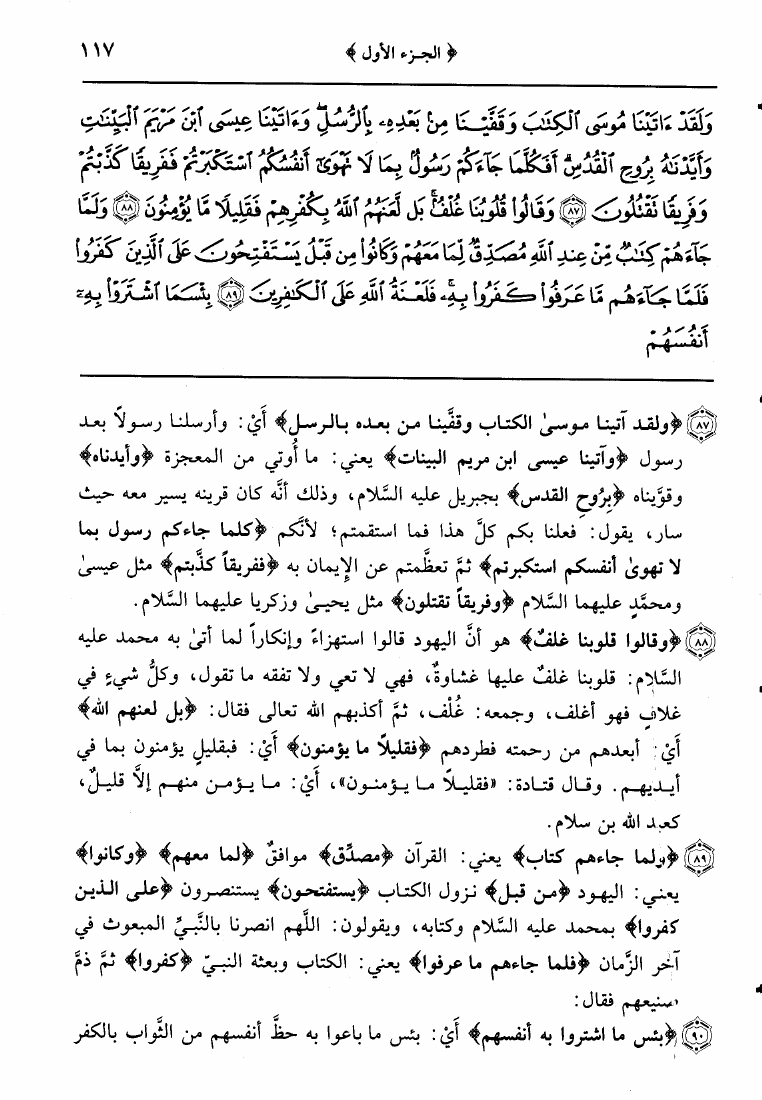 ﴿ الجزء الأول ﴾ ١١٧
وَلَقَدْ ءَاتَيْنَا مُوسَى ٱلْكِتَٰبَ وَقَفَّيْنَا مِنۢ بَعْدِهِۦ بِٱلرُّسُلِۖ وَءَاتَيْنَا عِيسَى ٱبْنَ مَرْيَمَ ٱلْبَيِّنَٰتِ
وَأَيَّدْنَٰهُ بِرُوحِ ٱلْقُدُسِۗ أَفَكُلَّمَا جَآءَكُمْ رَسُولٌۢ بِمَا لَا تَهْوَىٰٓ أَنفُسُكُمُ ٱسْتَكْبَرْتُمْ فَفَرِيقًا كَذَّبْتُمْ
وَفَرِيقًا تَقْتُلُونَ ﴿٨٧﴾ وَقَالُوا۟ قُلُوبُنَا غُلْفٌۢۚ بَل لَّعَنَهُمُ ٱللَّهُ بِكُفْرِهِمْ فَقَلِيلًا مَّا يُؤْمِنُونَ ﴿٨٨﴾ وَلَمَّا
جَآءَهُمْ كِتَٰبٌ مِّنْ عِندِ ٱللَّهِ مُصَدِّقٌ لِّمَا مَعَهُمْ وَكَانُوا۟ مِن قَبْلُ يَسْتَفْتِحُونَ عَلَى ٱلَّذِينَ كَفَرُوا۟
فَلَمَّا جَآءَهُم مَّا عَرَفُوا۟ كَفَرُوا۟ بِهِۦۚ فَلَعْنَةُ ٱللَّهِ عَلَى ٱلْكَٰفِرِينَ ﴿٨٩﴾ بِئْسَمَا ٱشْتَرَوْا۟ بِهِۦٓ
أَنفُسَهُمْ
﴿٨٧﴾ ﴿ولقد آتينا موسىٰ الكتاب وقفَّينا من بعده بالرسل﴾ أَيْ: وأرسلنا رسولاً بعد
رسول ﴿وآتينا عيسى ابن مريم البينات﴾ يعني: ما أُوتي من المعجزة ﴿وأيدناه﴾
وقوَّيناه ﴿بِرُوحِ القدس﴾ بجبريل عليه السَّلام، وذلك أنَّه كان قرينه يسير معه حيث
سار، يقول: فعلنا بكم كلَّ هذا فما استقمتم؛ لأنَّكم ﴿كلما جاءكم رسول بما
لا تهوىٰ أنفسكم استكبرتم﴾ ثمَّ تعظَّمتم عن الإِيمان به ﴿ففريقاً كذَّبتم﴾ مثل عيسىٰ
ومحمَّدٍ عليهما السَّلام ﴿وفريقاً تقتلون﴾ مثل يحيىٰ وزكريا عليهما السَّلام.
﴿٨٨﴾ ﴿وقالوا قلوبنا غلفٌ﴾ هو أنَّ اليهود قالوا استهزاءً وإنكاراً لما أتىٰ به محمد عليه
السَّلام: قلوبنا غلفٌ عليها غشاوةٌ، فهي لا تعي ولا تفقه ما تقول، وكلُّ شيءٍ في
غلافٍ فهو أغلف، وجمعه: غُلْف، ثمَّ أكذبهم الله تعالى فقال: ﴿بل لعنهم الله﴾
أَيْ: أبعدهم من رحمته فطردهم ﴿فقليلاً ما يؤمنون﴾ أَيْ: فبقليلٍ يؤمنون بما في
أيديهم. وقال قتادة: «فقليلاً ما يؤمنون»، أَيْ: ما يؤمن منهم إلَّا قليلٌ،
كعبد الله بن سلام.
﴿٨٩﴾ ﴿ولما جاءهم كتاب﴾ يعني: القرآن ﴿مصدِّق﴾ موافقٌ ﴿لما معهم﴾ ﴿وكانوا﴾
يعني: اليهود ﴿من قبل﴾ نزول الكتاب ﴿يستفتحون﴾ يستنصرون ﴿على الذين
كفروا﴾ بمحمد عليه السَّلام وكتابه، ويقولون: اللَّهم انصرنا بالنَّبيِّ المبعوث في
آخر الزَّمان ﴿فلما جاءهم ما عرفوا﴾ يعني: الكتاب وبعثة النبيّ ﴿كفروا﴾ ثمَّ ذمَّ
صنيعهم فقال:
﴿٩٠﴾ ﴿بئس ما اشتروا به أنفسهم﴾ أَيْ: بئس ما باعوا به حظَّ أنفسهم من الثَّواب بالكفر